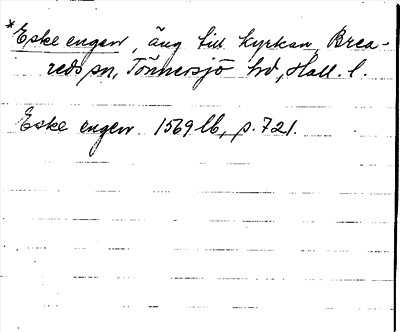 *Eske engen, äng till kyrkan, Brea-
reds sn, Tönnersjö hd, Hall. l.
Eske engen 1569 lb, p. 721.